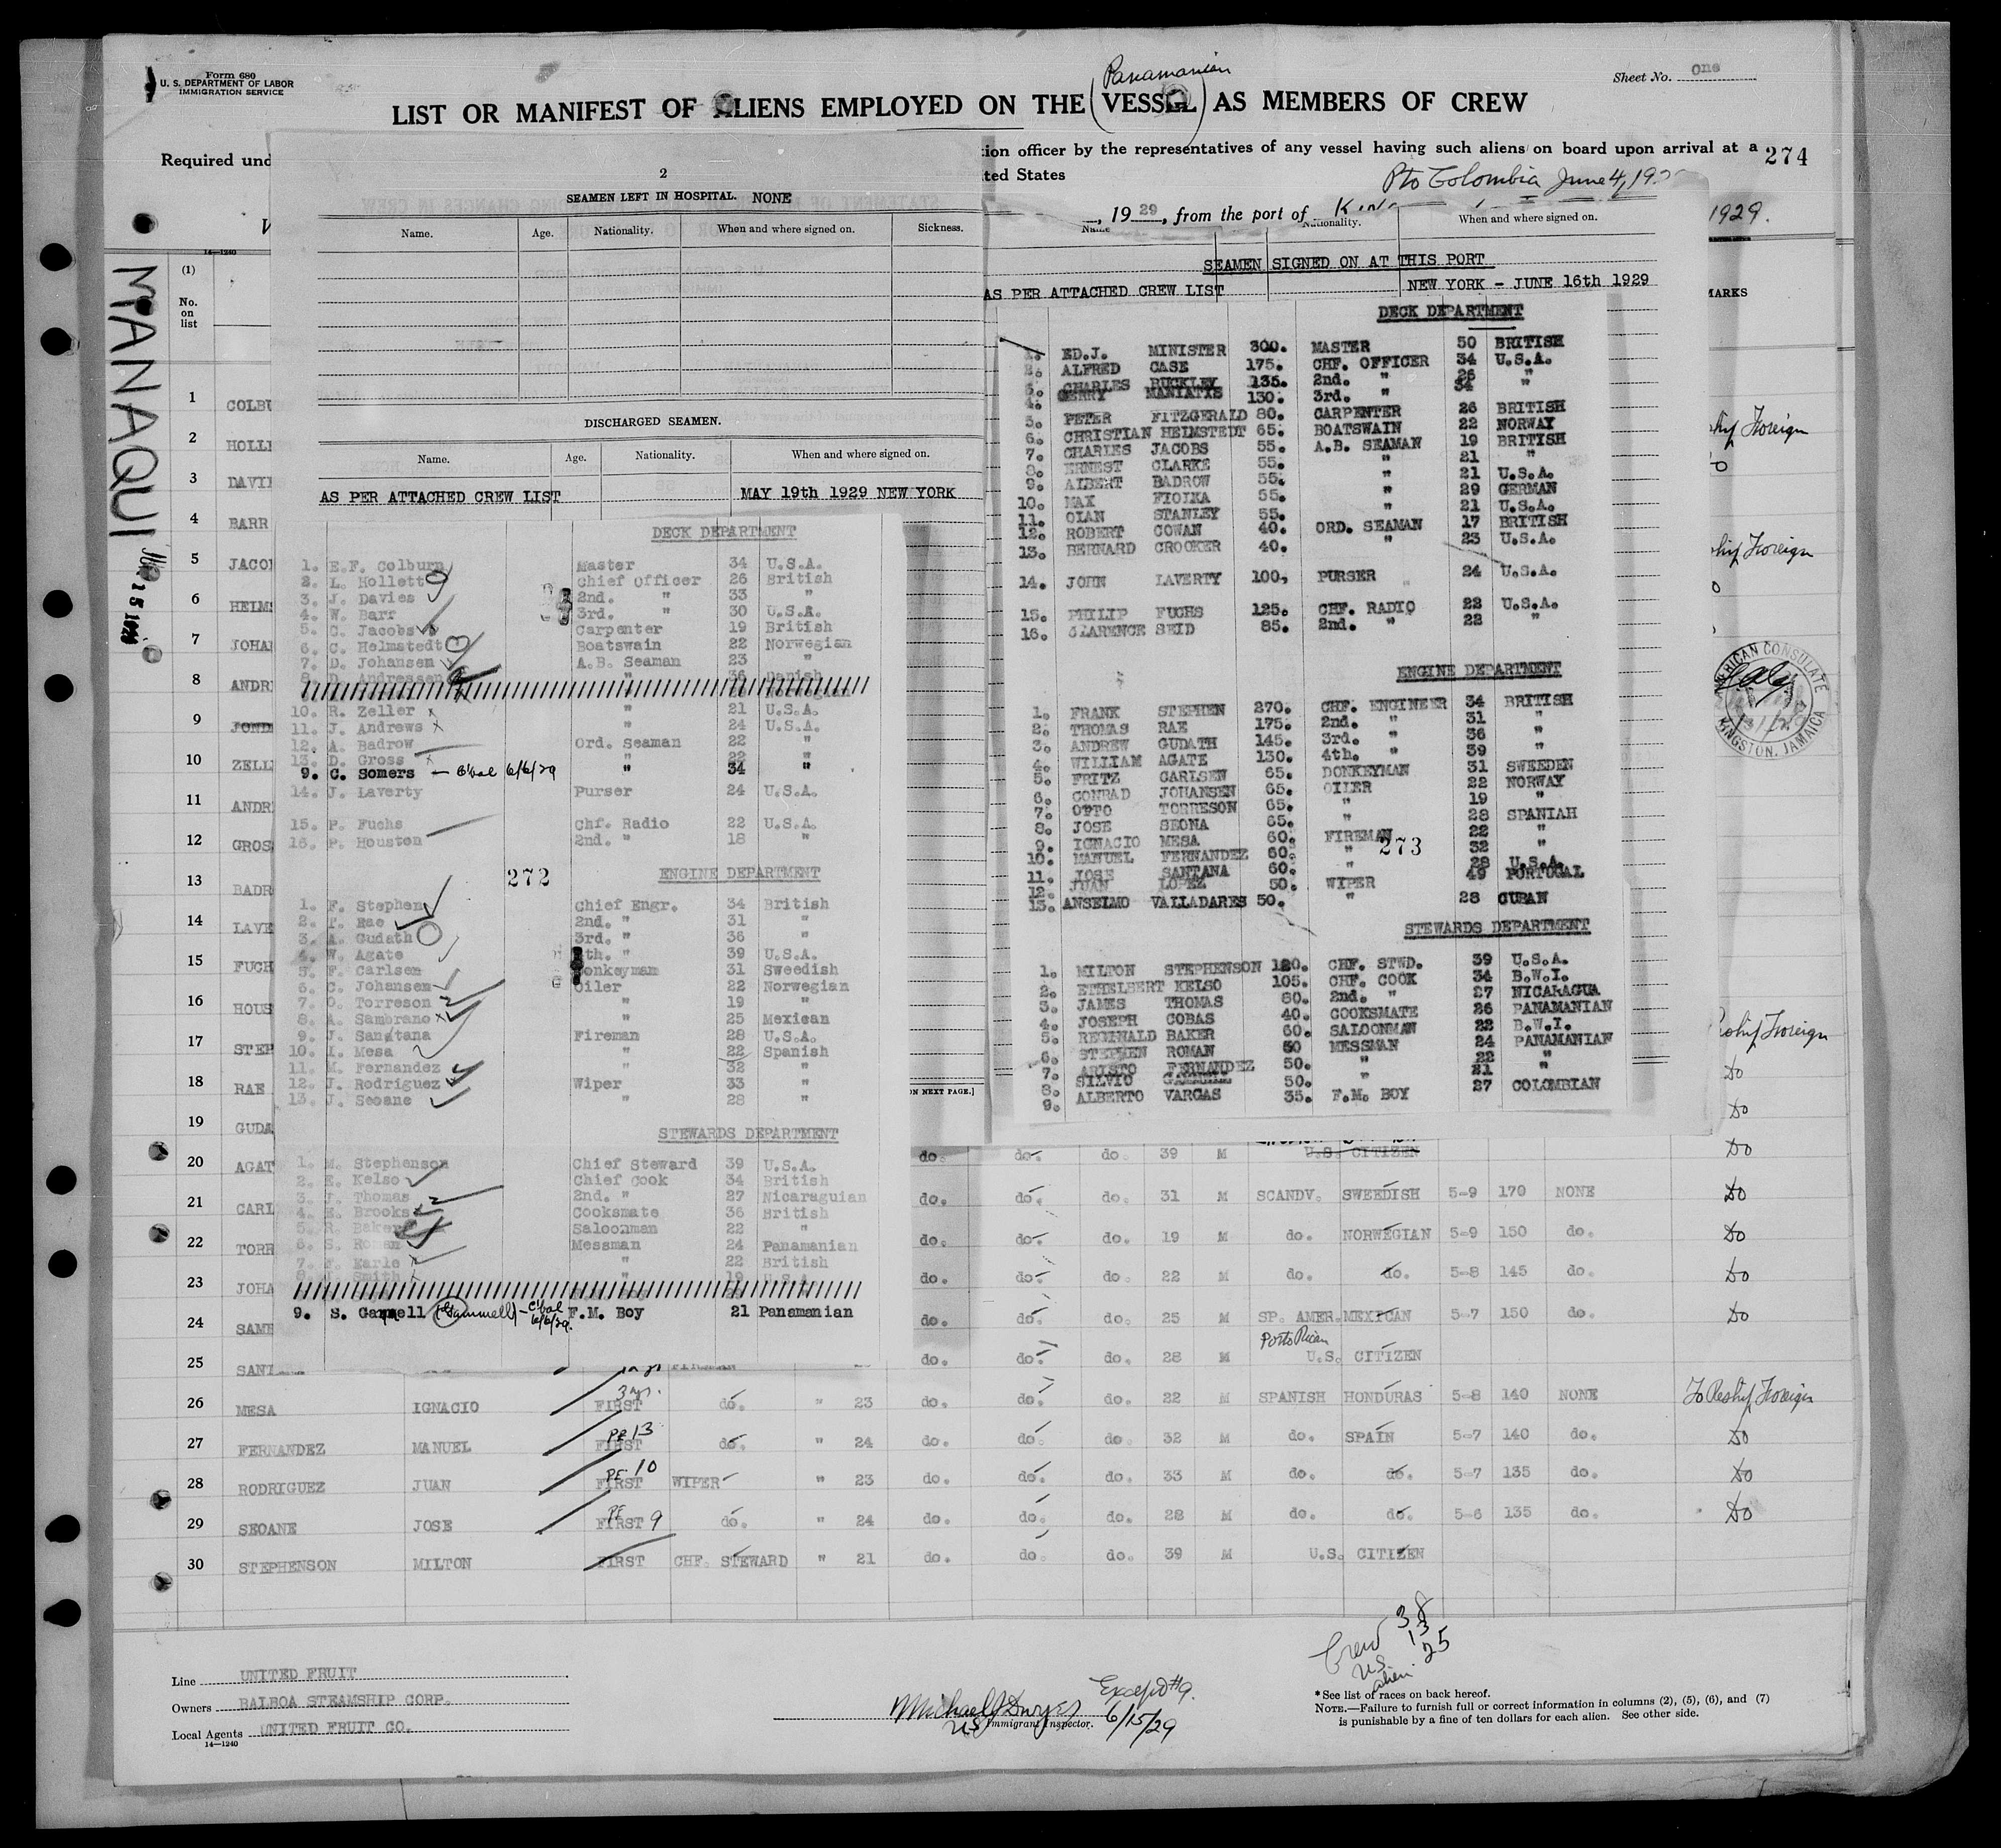 Form 680
U. S. DEPARTMENT OF LABOR
IMMIGRATION SERVICE
Sheet No. One
Panamanian
LIST OR MANIFEST OF ALIENS EMPLOYED ON THE (VESSEL) AS MEMBERS OF CREW
Required und
tion officer by the representatives of any vessel having such aliens on board upon arrival at a
274
ted States
Pto Colombia June 4, 19
, 19 29, from the port of
1929.
MANAQUI
14—1240
(1)
No.
on
list
MARKS
2
SEAMEN LEFT IN HOSPITAL. NONE
Name. Age. Nationality. When and where signed on. Sickness.
DISCHARGED SEAMEN.
Name. Age. Nationality. When and where signed on.
AS PER ATTACHED CREW LIST MAY 19th 1929 NEW YORK
DECK DEPARTMENT
1. E.F. Colburn Master 34 U.S.A.
2. L. Hollett Chief Officer 26 British
3. J. Davies 2nd. " 33 "
4. W. Barr 3rd. " 30 U.S.A.
5. C. Jacobs Carpenter 19 British
6. C. Helmstedt Boatswain 22 Norwegian
7. D. Johansen A.B. Seaman 23 "
8. D. Andressen " 36 Danish
10. R. Zeller " 21 U.S.A.
11. J. Andrews " 24 U.S.A.
12. A. Badrow Ord. Seaman 22 "
13. D. Gross " 22 "
9. C. Somers — C'bal 6/6/29 " 34 "
14. J. Laverty Purser 24 U.S.A.
15. P. Fuchs Chf. Radio 22 U.S.A.
16. P. Houston 2nd. " 18 "
272
ENGINE DEPARTMENT
1. F. Stephen Chief Engr. 34 British
2. T. Rae 2nd. " 31 "
3. A. Gudath 3rd. " 36 "
4. W. Agate 4th. " 39 U.S.A.
5. F. Carlsen Donkeyman 31 Swedish
6. C. Johansen Oiler 22 Norwegian
7. O. Torreson " 19 "
8. A. Sambrano " 25 Mexican
9. J. Santana Fireman 28 U.S.A.
10. I. Mesa " 22 Spanish
11. M. Fernandez " 32 "
12. J. Rodriguez Wiper 33 "
13. J. Seoane " 28 "
STEWARDS DEPARTMENT
1. M. Stephenson Chief Steward 39 U.S.A.
2. E. Kelso Chief Cook 34 British
3. J. Thomas 2nd. " 27 Nicaraguian
4. E. Brooks Cooksmate 36 British
5. R. Baker Saloonman 22 "
6. S. Roman Messman 24 Panamanian
7. F. Earle " 22 British
8. Smith " 19 U.S.A.
9. S. Gammell (Gammell) — C'bal 6/6/29. F.M. Boy 21 Panamanian
Name Nationality. When and where signed on.
SEAMEN SIGNED ON AT THIS PORT
AS PER ATTACHED CREW LIST NEW YORK - JUNE 16th 1929
DECK DEPARTMENT
1. ED.J. MINISTER 300. MASTER 50 BRITISH
2. ALFRED CASE 175. CHF. OFFICER 34 U.S.A.
3. CHARLES BUCKLEY 135. 2nd. " 26 "
4. GERRY MANIATIS 130. 3rd. " 34 "
5. PETER FITZGERALD 80. CARPENTER 26 BRITISH
6. CHRISTIAN HELMSTEDT 65. BOATSWAIN 22 NORWAY
7. CHARLES JACOBS 55. A.B. SEAMAN 19 BRITISH
8. ERNEST CLARKE 55. " 21 "
9. ALBERT BADROW 55. " 21 U.S.A.
10. MAX FIOIKA 55. " 29 GERMAN
11. OIAN STANLEY 55. " 21 U.S.A.
12. ROBERT COWAN 40. ORD. SEAMAN 17 BRITISH
13. BERNARD CROOKER 40. " 23 U.S.A.
14. JOHN LAVERTY 100, PURSER 24 U.S.A.
15. PHILIP FUCHS 125. CHF. RADIO 22 U.S.A.
16. CLARENCE SEID 85. 2nd. " 22 "
ENGINE DEPARTMENT
1. FRANK STEPHEN 270. CHF. ENGINEER 34 BRITISH
2. THOMAS RAE 175. 2nd. " 31 "
3. ANDREW GUDATH 145. 3rd. " 36 "
4. WILLIAM AGATE 130. 4th. " 39 "
5. FRITZ CARLSEN 65. DONKEYMAN 31 SWEDEN
6. CONRAD JOHANSEN 65. OILER 22 NORWAY
7. OTTO TORRESON 65. " 19 "
8. JOSE SEONA 65. " 28 SPANIAH
9. IGNACIO MESA 60. FIREMAN 22 "
273
10. MANUEL FERNANDEZ 60. " 32 "
11. JOSE SANTANA 60. " 28 U.S.A.
12. JUAN LOPEZ 50. WIPER 49 PORTUGAL
13. ANSELMO VALLADARES 50. " 28 CUBAN
STEWARDS DEPARTMENT
1. MILTON STEPHENSON 120. CHF. STWD. 39 U.S.A.
2. ETHELBERT KELSO 105. CHF. COOK 34 B.W.I.
3. JAMES THOMAS 80. 2nd. " 27 NICARAGUA
4. JOSEPH COBAS 40. COOKSMATE 26 PANAMANIAN
5. REGINALD BAKER 60. SALOONMAN 22 B.W.I.
6. STEPHEN ROMAN 50 MESSMAN 24 PANAMANIAN
7. ARISTO FERNANDEZ 50. " 22 "
8. SILVIO 50. " 21 "
9. ALBERTO VARGAS 35. F.M. BOY 27 COLOMBIAN
ON NEXT PAGE.]
AMERICAN CONSULATE
KINGSTON, JAMAICA
1 COLBU
2 HOLLE
3 DAVIE
4 BARR
5 JACOB
6 HELMS
7 JOHA
8 ANDRE
9
10 ZELL
11 ANDR
12 GROS
13 BADR
14 LAVE
15 FUCH
16 HOUS
17 STEP
18 RAE Do
19 GUDA Do
20 AGAT do. do. do. 39 M U.S. CITIZEN Do
21 CARL do. do. do. 31 M SCANDV. SWEDISH 5-9 170 NONE Do
22 TORR do. do. do. 19 M do. NORWEGIAN 5-9 150 do. Do
23 JOHA do. do. do. 22 M do. do. 5-8 145 do. Do
24 SAMB do. do. do. 25 M SP. AMER. MEXICAN 5-7 150 do. Do
Porto Rican
25 SANT do. do. do. 28 M U.S. CITIZEN
26 MESA IGNACIO 3 yr. FIRST do. " 23 do. do. do. 22 M SPANISH HONDURAS 5-8 140 NONE To Reship Foreign
27 FERNANDEZ MANUEL PE 13 FIRST do. " 24 do. do. do. 32 M do. SPAIN 5-7 140 do. Do
28 RODRIGUEZ JUAN PE 10 FIRST WIPER " 23 do. do. do. 33 M do. do. 5-7 135 do. Do
29 SEOANE JOSE PE 9 FIRST do. " 24 do. do. do. 28 M do. do. 5-6 135 do. Do
30 STEPHENSON MILTON FIRST CHF. STEWARD " 21 do. do. do. 39 M U.S. CITIZEN
Crew 38
US 13
alien. 25
Line UNITED FRUIT
Owners BALBOA STEAMSHIP CORP.
Local Agents UNITED FRUIT CO.
14—1240
Michael J Dwyer
US Immigrant Inspector.
Except #9.
6/15/29
*See list of races on back hereof.
NOTE.—Failure to furnish full or correct information in columns (2), (5), (6), and (7)
is punishable by a fine of ten dollars for each alien. See other side.